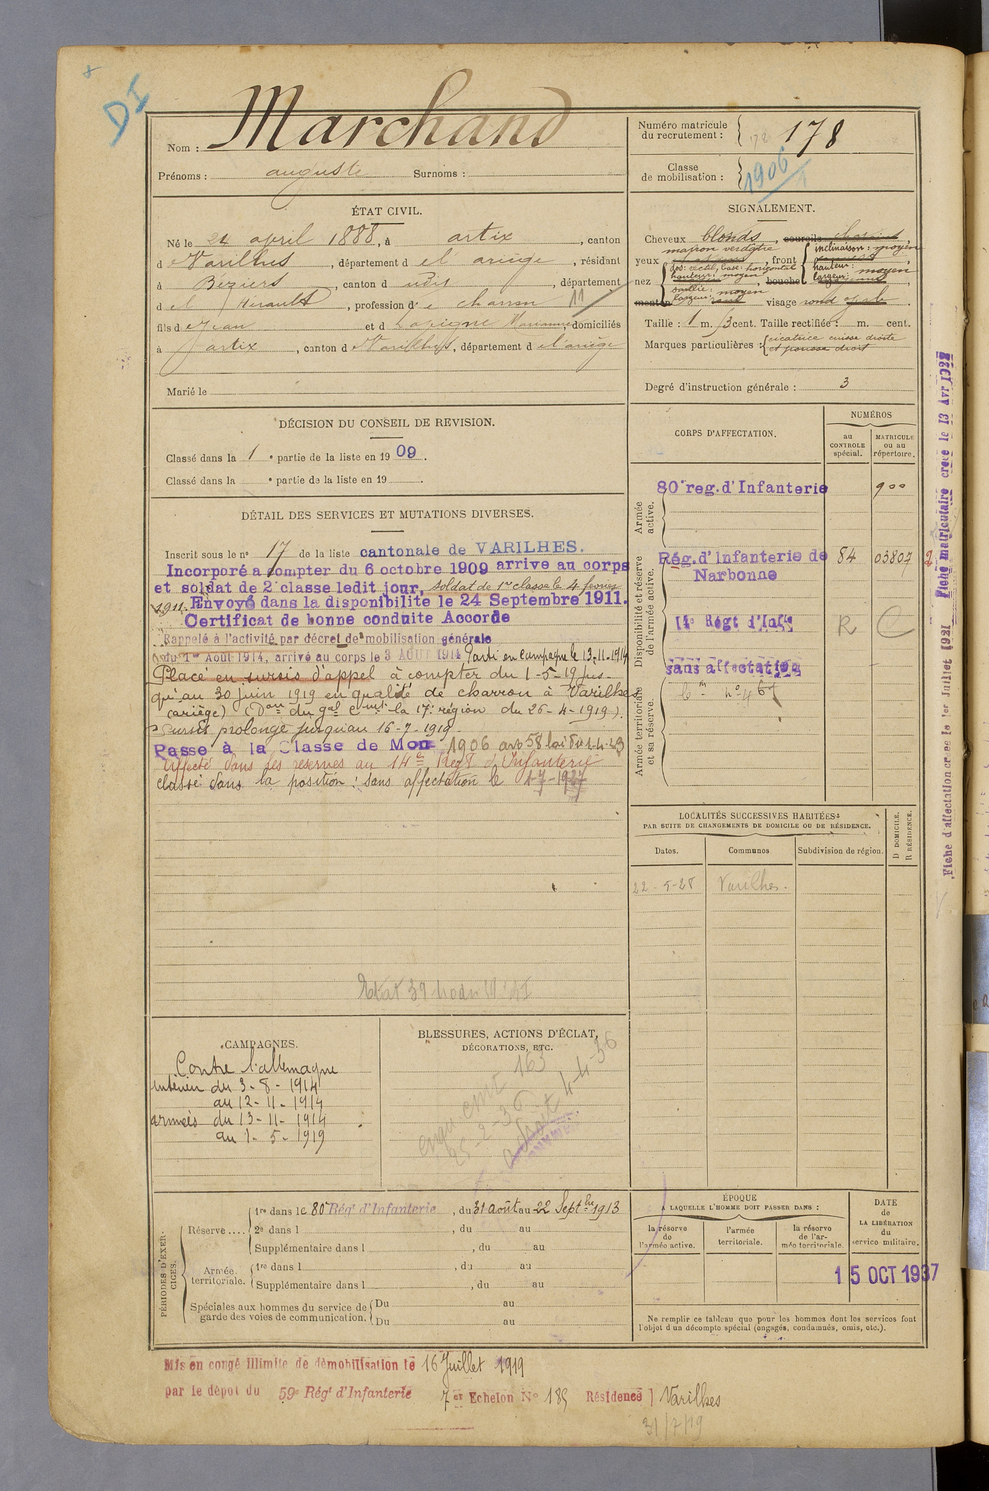 DI
Nom : Marchand
Prénoms : auguste Surnoms :
Numéro matricule du recrutement : 178 178
Classe de mobilisation : 1906
ÉTAT CIVIL.
Né le 24 april 1888, à artix, canton
d e Varilhes, département d el ariège, résidant
à Beziers, canton d u dit, département
d el Herault, profession d e charron 11
fils d e Jean et d domiciliés
à artix, canton d e Varilhes, département d el ariège
Marié le
SIGNALEMENT.
Cheveux blonds, sourcils
marron verdatre
yeux , front inclinaison: moyen
hauteur: moyen
largeur: moyen
nez dos: rectil, base: horizontal
hauteur: moyen
saillie: moyen
largeur:
bouche
menton visage rond ovale
Taille : 1 m. cent. Taille rectifiée : m. cent.
Marques particulières : cicatrice cuisse droite
et pousse droit
Degré d'instruction générale : 3
DÉCISION DU CONSEIL DE REVISION.
Classé dans la 1 e partie de la liste en 1909.
Classé dans la e partie de la liste en 19 .
DÉTAIL DES SERVICES ET MUTATIONS DIVERSES.
Inscrit sous le n° 17 de la liste cantonale de VARILHES.
Incorporé à compter du 6 octobre 1909 arrivé au corps
et soldat de 2e classe ledit jour, soldat de 1re classe le 4 février
1911. Envoyé dans la disponibilité le 24 Septembre 1911.
Certificat de bonne conduite Accordé
Rappelé à l'activité par décret de mobilisation générale
du 1er Août 1914, arrivé au corps le 3 AOUT 1914 Parti en campagne le 13-11-1914
Placé en sursis d'appel à compter du 1-5-19 jus-
qu'au 30 juin 1919 en qualité de charron à Varilhes
(ariège) (Don du gal Cmdt la 17e région du 26-4-1919).
Sursis prolongé jusqu'au 16-7-1919
Passe à la Classe de Mon 1906 art 58 loi du 1-4-23
Affecté dans les réserves au 14e Régt d'Infanterie
classé dans la position : sans affectation le 1-7-1927
CORPS D'AFFECTATION.
NUMÉROS
au CONTROLE spécial.
MATRICULE ou au répertoire.
Armée active.
80e reg. d'Infanterie 900
Disponibilité et réserve de l'armée active.
Rég. d'Infanterie de Narbonne 84 03807 2
14e Régt d'Infie R C
sans affectation
Armée territoriale et sa réserve.
LOCALITÉS SUCCESSIVES HABITÉES
PAR SUITE DE CHANGEMENTS DE DOMICILE OU DE RÉSIDENCE.
Dates. Communes. Subdivision de région. D DOMICILE. R RÉSIDENCE.
22-5-28 Varilhes.
CAMPAGNES.
Contre l'allemagne
intérieur du 3-8-1914
au 12-11-1914
armées du 13-11-1914
au 1-5-1919
BLESSURES, ACTIONS D'ÉCLAT,
DÉCORATIONS, ETC.
163
25-2-36
4-4-36
PÉRIODES D'EXERCICES.
Réserve .... 1re dans le 80e Régt d'Infanterie, du 31 août au 22 Septbre 1913
2e dans l , du au
Supplémentaire dans l , du au
Armée territoriale. 1re dans l , du au
Supplémentaire dans l , du au
Spéciales aux hommes du service de garde des voies de communication. Du au
Du au
ÉPOQUE
A LAQUELLE L'HOMME DOIT PASSER DANS :
la réserve de l'armée active.
l'armée territoriale.
la réserve de l'armée territoriale.
DATE de LA LIBÉRATION du service militaire.
15 OCT 1937
Ne remplir ce tableau que pour les hommes dont les services font
l'objet d'un décompte spécial (engagés, condamnés, omis, etc.).
Mis en congé illimité de démobilisation le 16 Juillet 1919
par le dépot du 59e Régt d'Infanterie 7e Echelon N° 185 Résidence Varilhes
31/7/19
Fiche d'affectation créée le 1er Juillet 1921 Fiche matriculaire créée le 13 Avr 1928